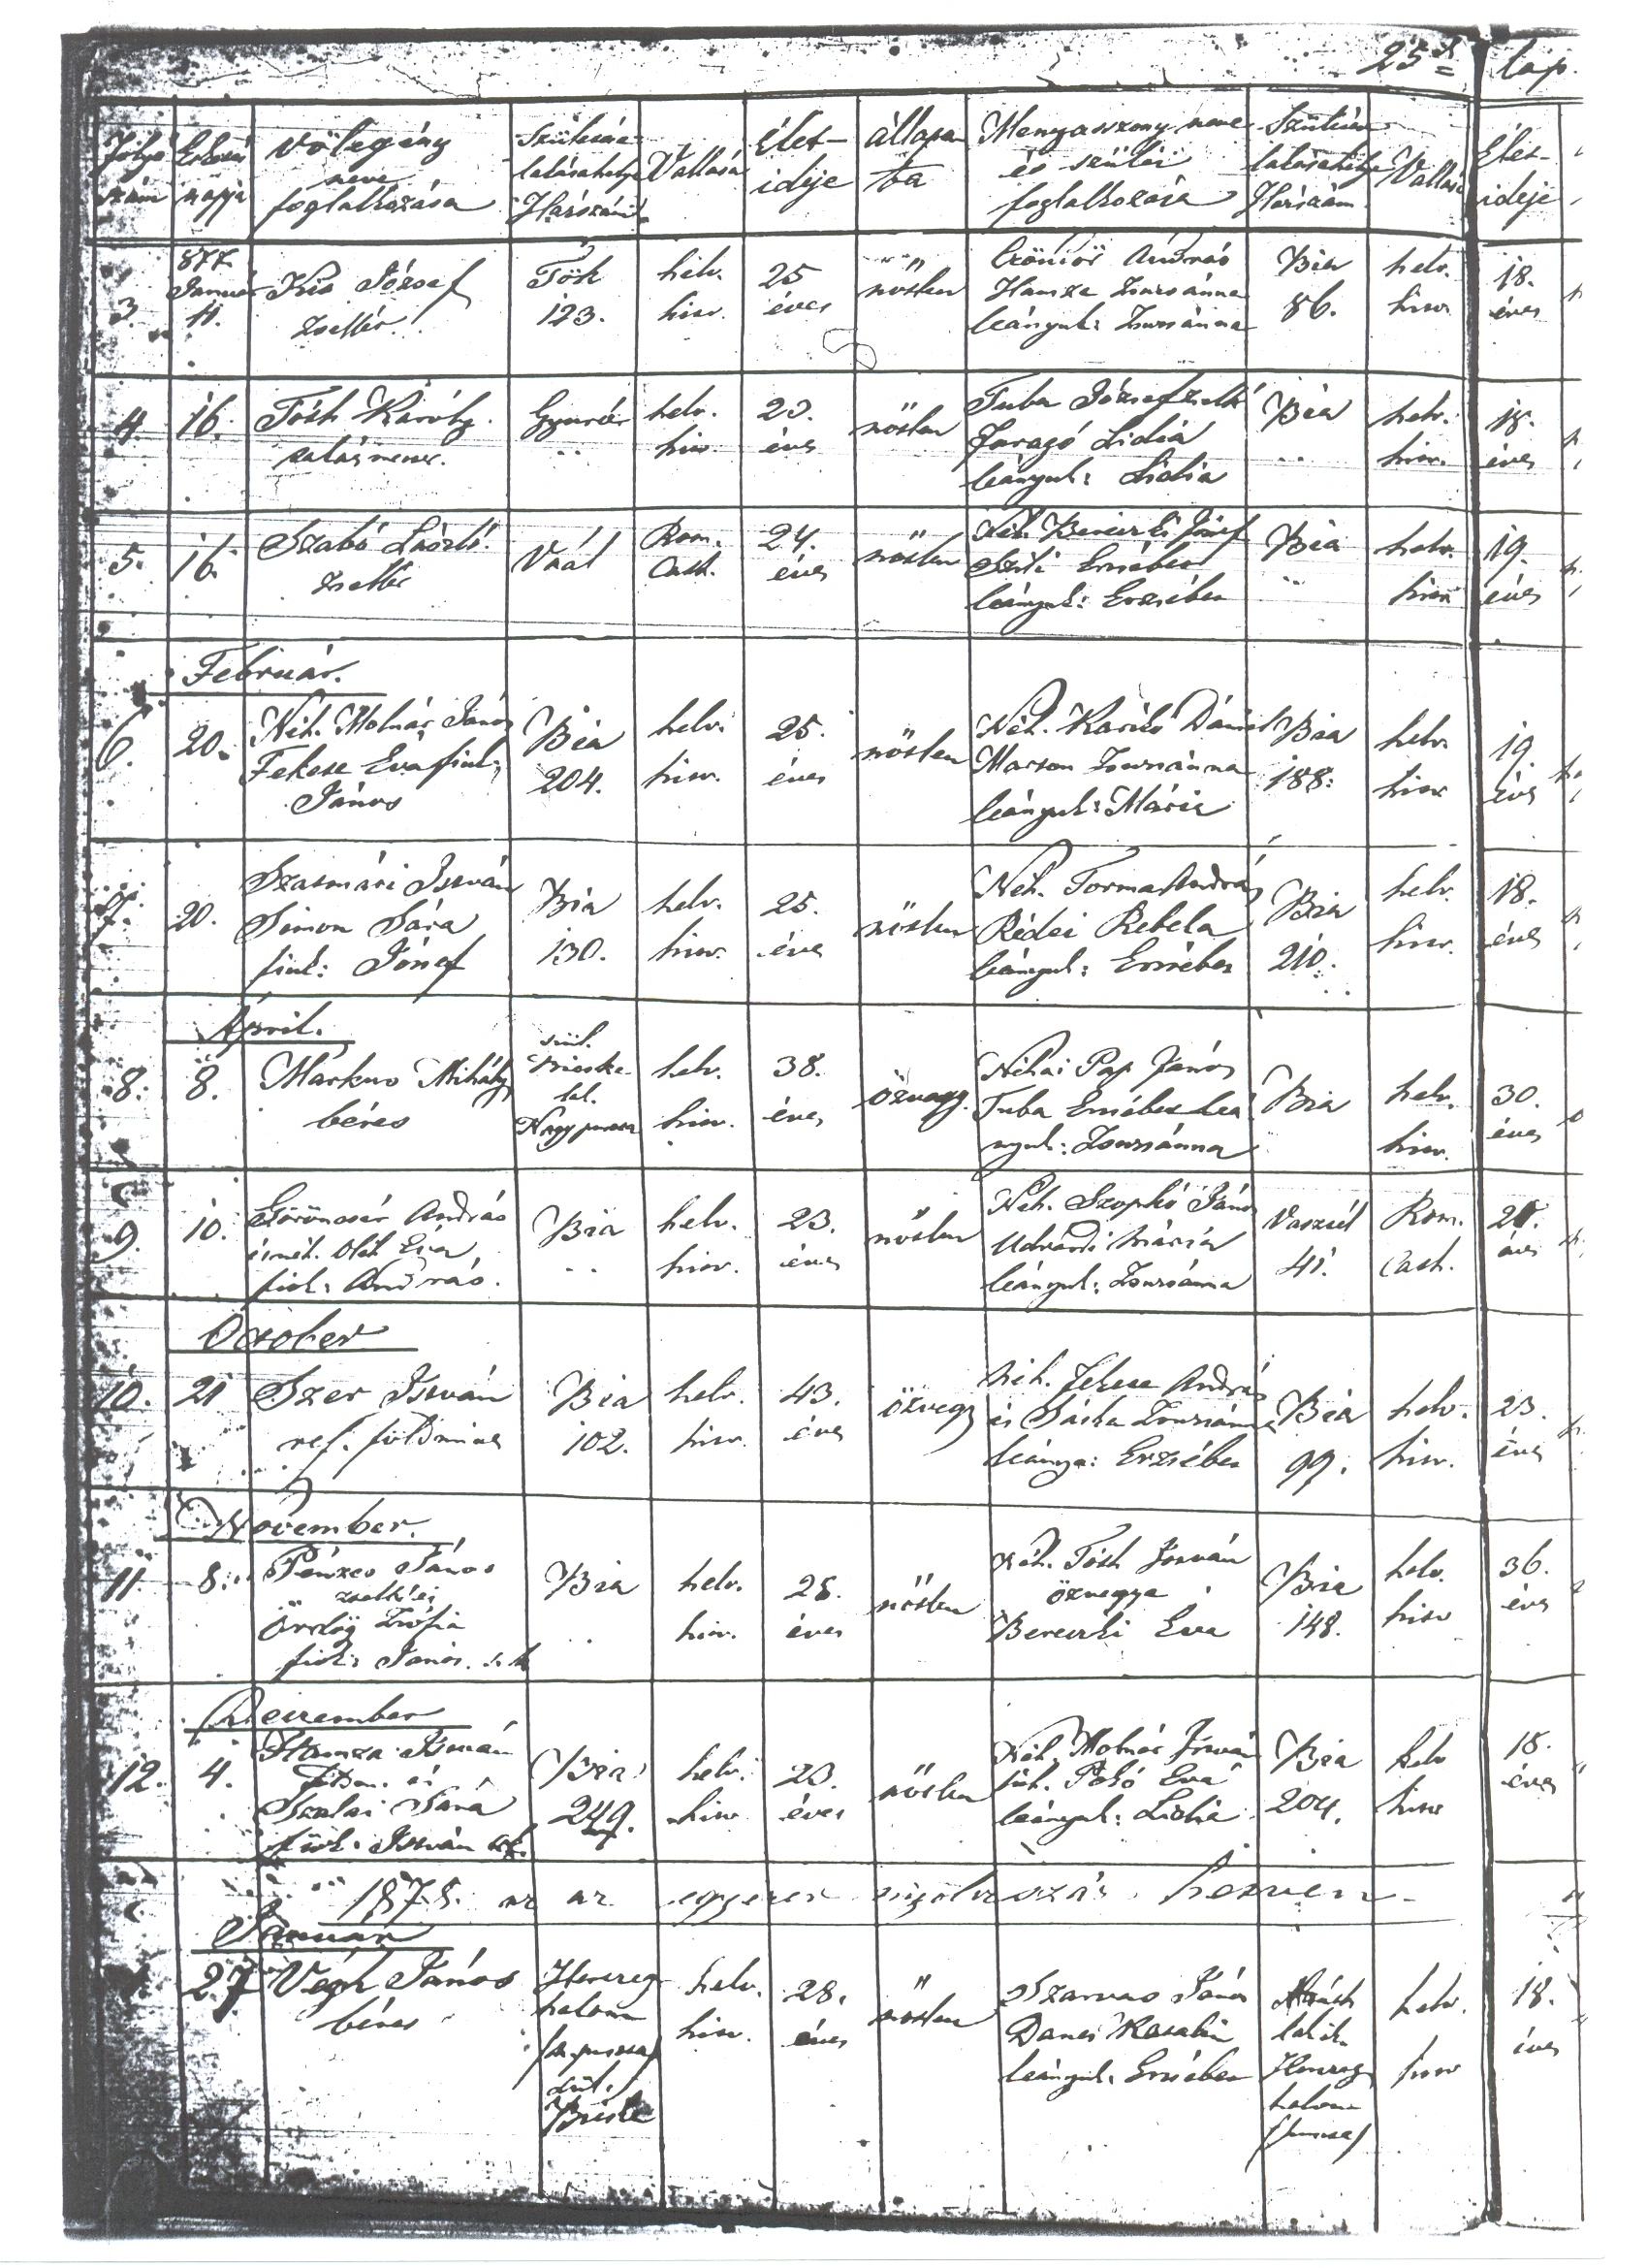 25ik lap.
Folyó szám
Esketés napja
Vőlegény neve foglalkozása
Születése lakásahelye Házszám
Vallása
Élet- ideje
állapa ta
Menyasszony neve és szülei foglalkozása
Születése lakásahelye Házszám
Vallása
Élet- ideje
877
3. Január 11. Kis József zsellér Tök 123. helv. hitv. 25 éves nőtlen András Hamza Zsuzsánna leányuk: Zsuzsánna Bia 86. helv. hitv. 18. éves
4. 16. Tóth Károly helv. hitv. 23. éves nőtlen Tuba József zsellé Faragó Lidia leányuk: Lidia Bia helv. hitv. 18. éves
5. 16. Szabó László zsellér Vaál Rom. Cath. 24. éves nőtlen Néh. Bereczki József Erzsébet leányuk: Erzsébet Bia helv. hitv. 19. éves
Február.
6. 20. Néh. Molnár János Fekete Eva fiuk: János Bia 204. helv. hitv. 25. éves nőtlen Néh. Karikó Dániel Marton Zsuzsánna leányuk: Mária Bia 188. helv. hitv 19. éves
7. 20. Szatmári István Simon Sára fiuk: József Bia 130. helv. hitv. 25. éves nőtlen Néh. Torma András Rédei Rebeka leányuk: Erzsébet Bia 210. helv. hitv. 18. éves
Ápril.
8. 8. Markus Mihály béres szül. Bicske lak. Nagy puszta helv. hitv. 38. éves özvegy. Néhai Pap János Tuba Erzsébet leá nyuk: Zsuzsánna Bia helv. hitv. 30. éves
9. 10. Göröncsér András és néh. Oláh Éva fiok: András. Bia helv. hitv. 23. éves nőtlen Néh. Szopkó János Udvardi Mária leányuk: Zsuzsánna 41. Rom. Cath. éves
October
10. 21 Szer István ref. földmives Bia 102. helv. hitv. 43. éves özvegy néh. Fekete András és Sáska Zsuzsánna leánya: Erzsébet Bia 99. helv. hitv. 23. éves
November.
11 8. Pénzes János zsellér és Ördög Zsófia fiok: János. Bia helv. hitv. 28. éves nőtlen Néh. Tóth István özvegye Bereczki Eva Bia 148. helv. hitv 36. éves
Deczember
12. 4. Hamza István és Szalai Sára fiok: István Bia 249. helv. hitv 23. éves nőtlen Néh. Molnár István néh. Pakó Eva leányuk: Lidia Bia 204. helv hitv 18. éves
1878. az az egyezer nyolczszáz hetven-
Január
27 Végh János béres Herczeg halom (puszta) szül. Bicske helv. hitv. 28. éves nőtlen Szarvas János Danes Katalin leányuk: Erzsébet lakik Herczeg halom (puszta) helv. hitv 18. éves